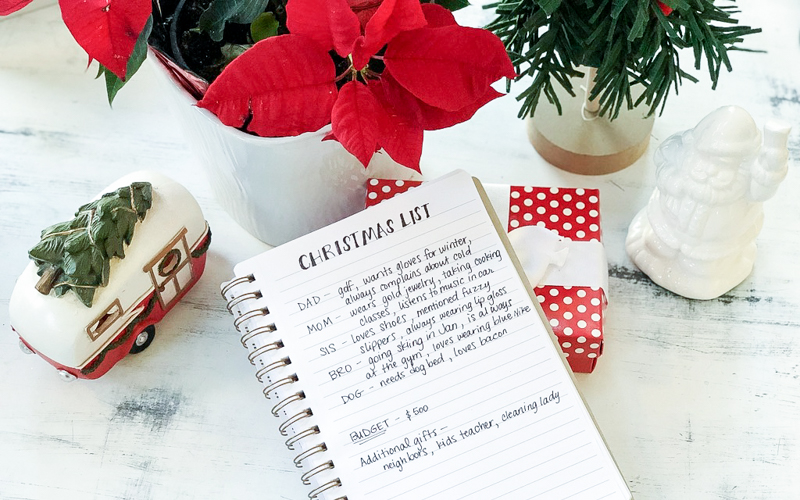 CHRISTMAS LIST
DAD - golf, wants gloves for winter,
always complains about cold
MOM - wears gold jewelry, taking cooking
classes, listens to music in car
SIS - loves shoes, mentioned fuzzy
slippers, always wearing lip gloss
BRO - going skiing in Jan, is always
at the gym, loves wearing blue Nike
DOG - needs dog bed, loves bacon
BUDGET - $500
Additional gifts -
neighbors, kids teacher, cleaning lady